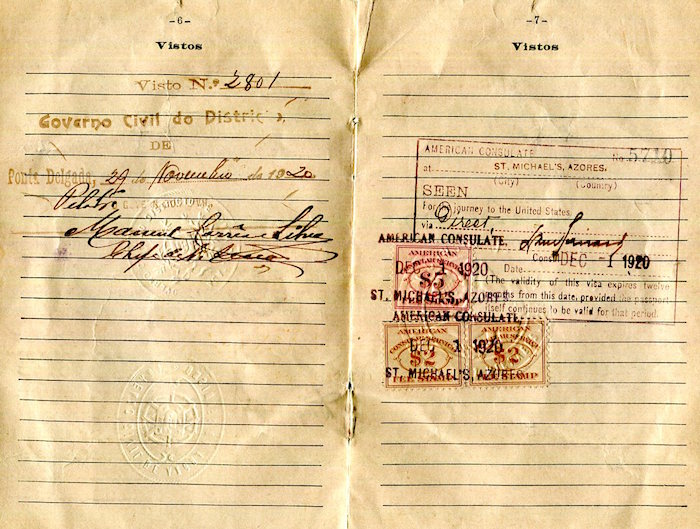 -6-
Vistos
Visto N.º 2801
Governo Civil do Distric
DE
Ponta Delgada, 29 de Novembro de 1920
Manuel
-7-
Vistos
AMERICAN CONSULATE No 5710
at ST. MICHAEL'S, AZORES.
(City) (Country)
SEEN
For journey to the United States,
via Direct
AMERICAN CONSULATE.
Consul
DEC -1 1920
Date
(The validity of this visa expires twelve
months from this date, provided the passport
itself continues to be valid for that period.
AMERICAN
CONSULAR SERVICE
$5
DEC 1 1920
ST. MICHAEL'S, AZORES
AMERICAN CONSULATE.
AMERICAN
CONSULAR SERVICE
$2
FEE STAMP
AMERICAN
CONSULAR SERVICE
$2
FEE STAMP
DEC 1 1920
ST. MICHAEL'S, AZORES